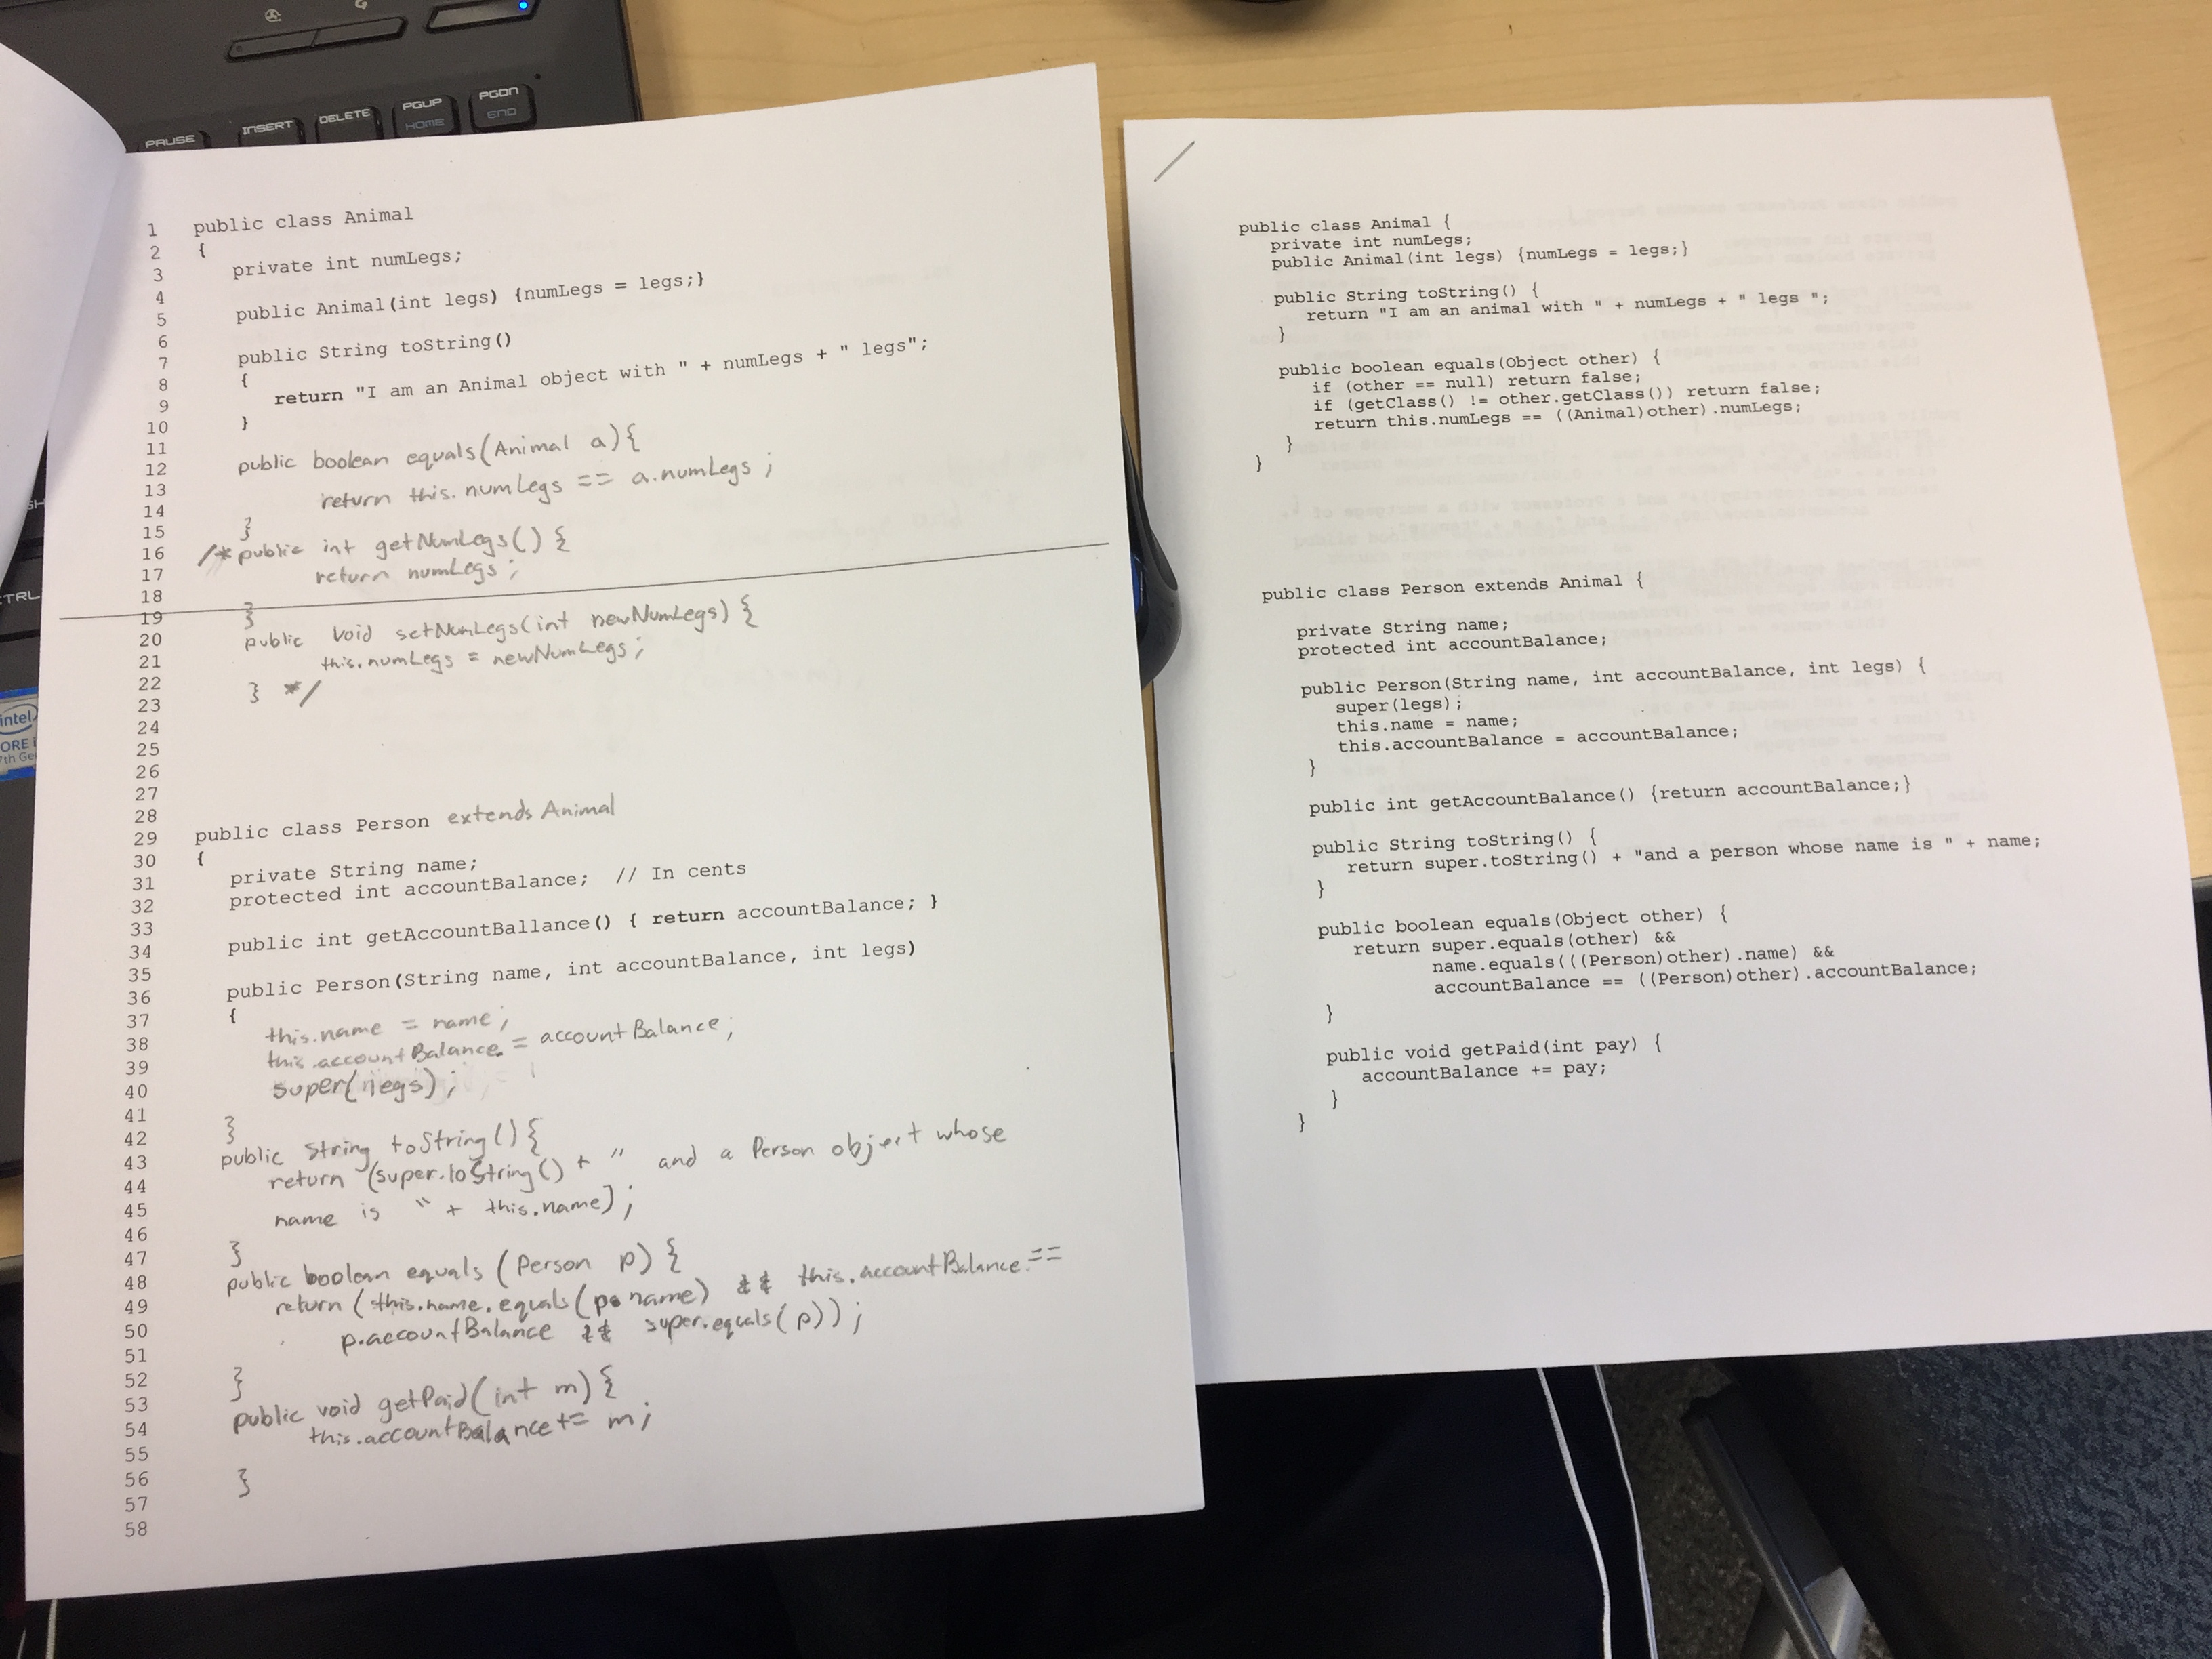 1 public class Animal
2 {
3 private int numLegs;
4
5 public Animal(int legs) {numLegs = legs;}
6
7 public String toString()
8 {
9 return "I am an Animal object with " + numLegs + " legs";
10 }
11
12 public boolean equals(Animal a){
13
14 return this.numLegs == a.numLegs;
15 }
16 /* public int getNumLegs() {
17 return numLegs;
18
19 }
20 public void setNumLegs(int newNumLegs) {
21 this.numLegs = newNumLegs;
22
23 } */
24
25
26
27
28
29 public class Person extends Animal
30 {
31 private String name;
32 protected int accountBalance; // In cents
33
34 public int getAccountBallance() { return accountBalance; }
35
36 public Person(String name, int accountBalance, int legs)
37 {
38 this.name = name;
39 this.accountBalance = accountBalance;
40 super(legs);
41
42 }
43 public String toString(){
44 return (super.toString() + " and a Person object whose
45
46 name is " + this.name);
47 }
48 public boolean equals (Person p) {
49 return (this.name.equals(p.name) && this.accountBalance ==
50 p.accountBalance && super.equals(p));
51
52 }
53 public void getPaid(int m){
54 this.accountBalance += m;
55
56 }
57
58
public class Animal {
private int numLegs;
public Animal(int legs) {numLegs = legs;}
public String toString() {
return "I am an animal with " + numLegs + " legs ";
}
public boolean equals(Object other) {
if (other == null) return false;
if (getClass() != other.getClass()) return false;
return this.numLegs == ((Animal)other).numLegs;
}
}
public class Person extends Animal {
private String name;
protected int accountBalance;
public Person(String name, int accountBalance, int legs) {
super(legs);
this.name = name;
this.accountBalance = accountBalance;
}
public int getAccountBalance() {return accountBalance;}
public String toString() {
return super.toString() + "and a person whose name is " + name;
}
public boolean equals(Object other) {
return super.equals(other) &&
name.equals(((Person)other).name) &&
accountBalance == ((Person)other).accountBalance;
}
public void getPaid(int pay) {
accountBalance += pay;
}
}
PAUSE
INSERT
DELETE
PGUP
HOME
PGDN
END
intel
CTRL